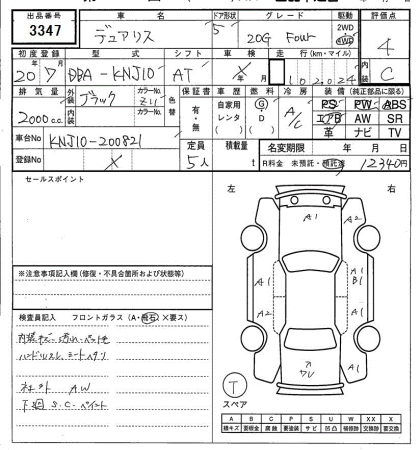 出品番号 車名 ドア形状 グレード 駆動 評価点
3347 デュアリス 5 20G Four 2WD 4WD 4
初度登録 型式 シフト 車検 走行(km・マイル) 内装
20年 7月 DBA-KNJ10 AT X年 月 102,024 C
排気量 外装 カラーNo. 色替 保証書 車歴 燃料 冷房 装備(純正部品に限る)
2000c.c. ブラック Z11 有・無 自家用 レンタ G D A/C PS PW ABS
内装 カラーNo. エアB AW SR
革 ナビ TV
車台No KNJ10-200821 定員 積載量 名変期限 年 月 日
登録No X 5人 t R料金 未預託・預託済 12340円
セールスポイント
左 右
A1 A2
※注意事項記入欄(修復・不具合箇所および状態等)
A1 A1
B1
A2 A1
検査員記入 フロントガラス(A・飛石・X要ス)
ハンドルスレ、シートヘタリ
A1
社外 AW
下廻 S.C-ペイント
T
スペア
A B C P S U W X XX
線キズ 要板金 腐蝕 要塗装 サビ 凹凸 補修跡 交換跡 要交換